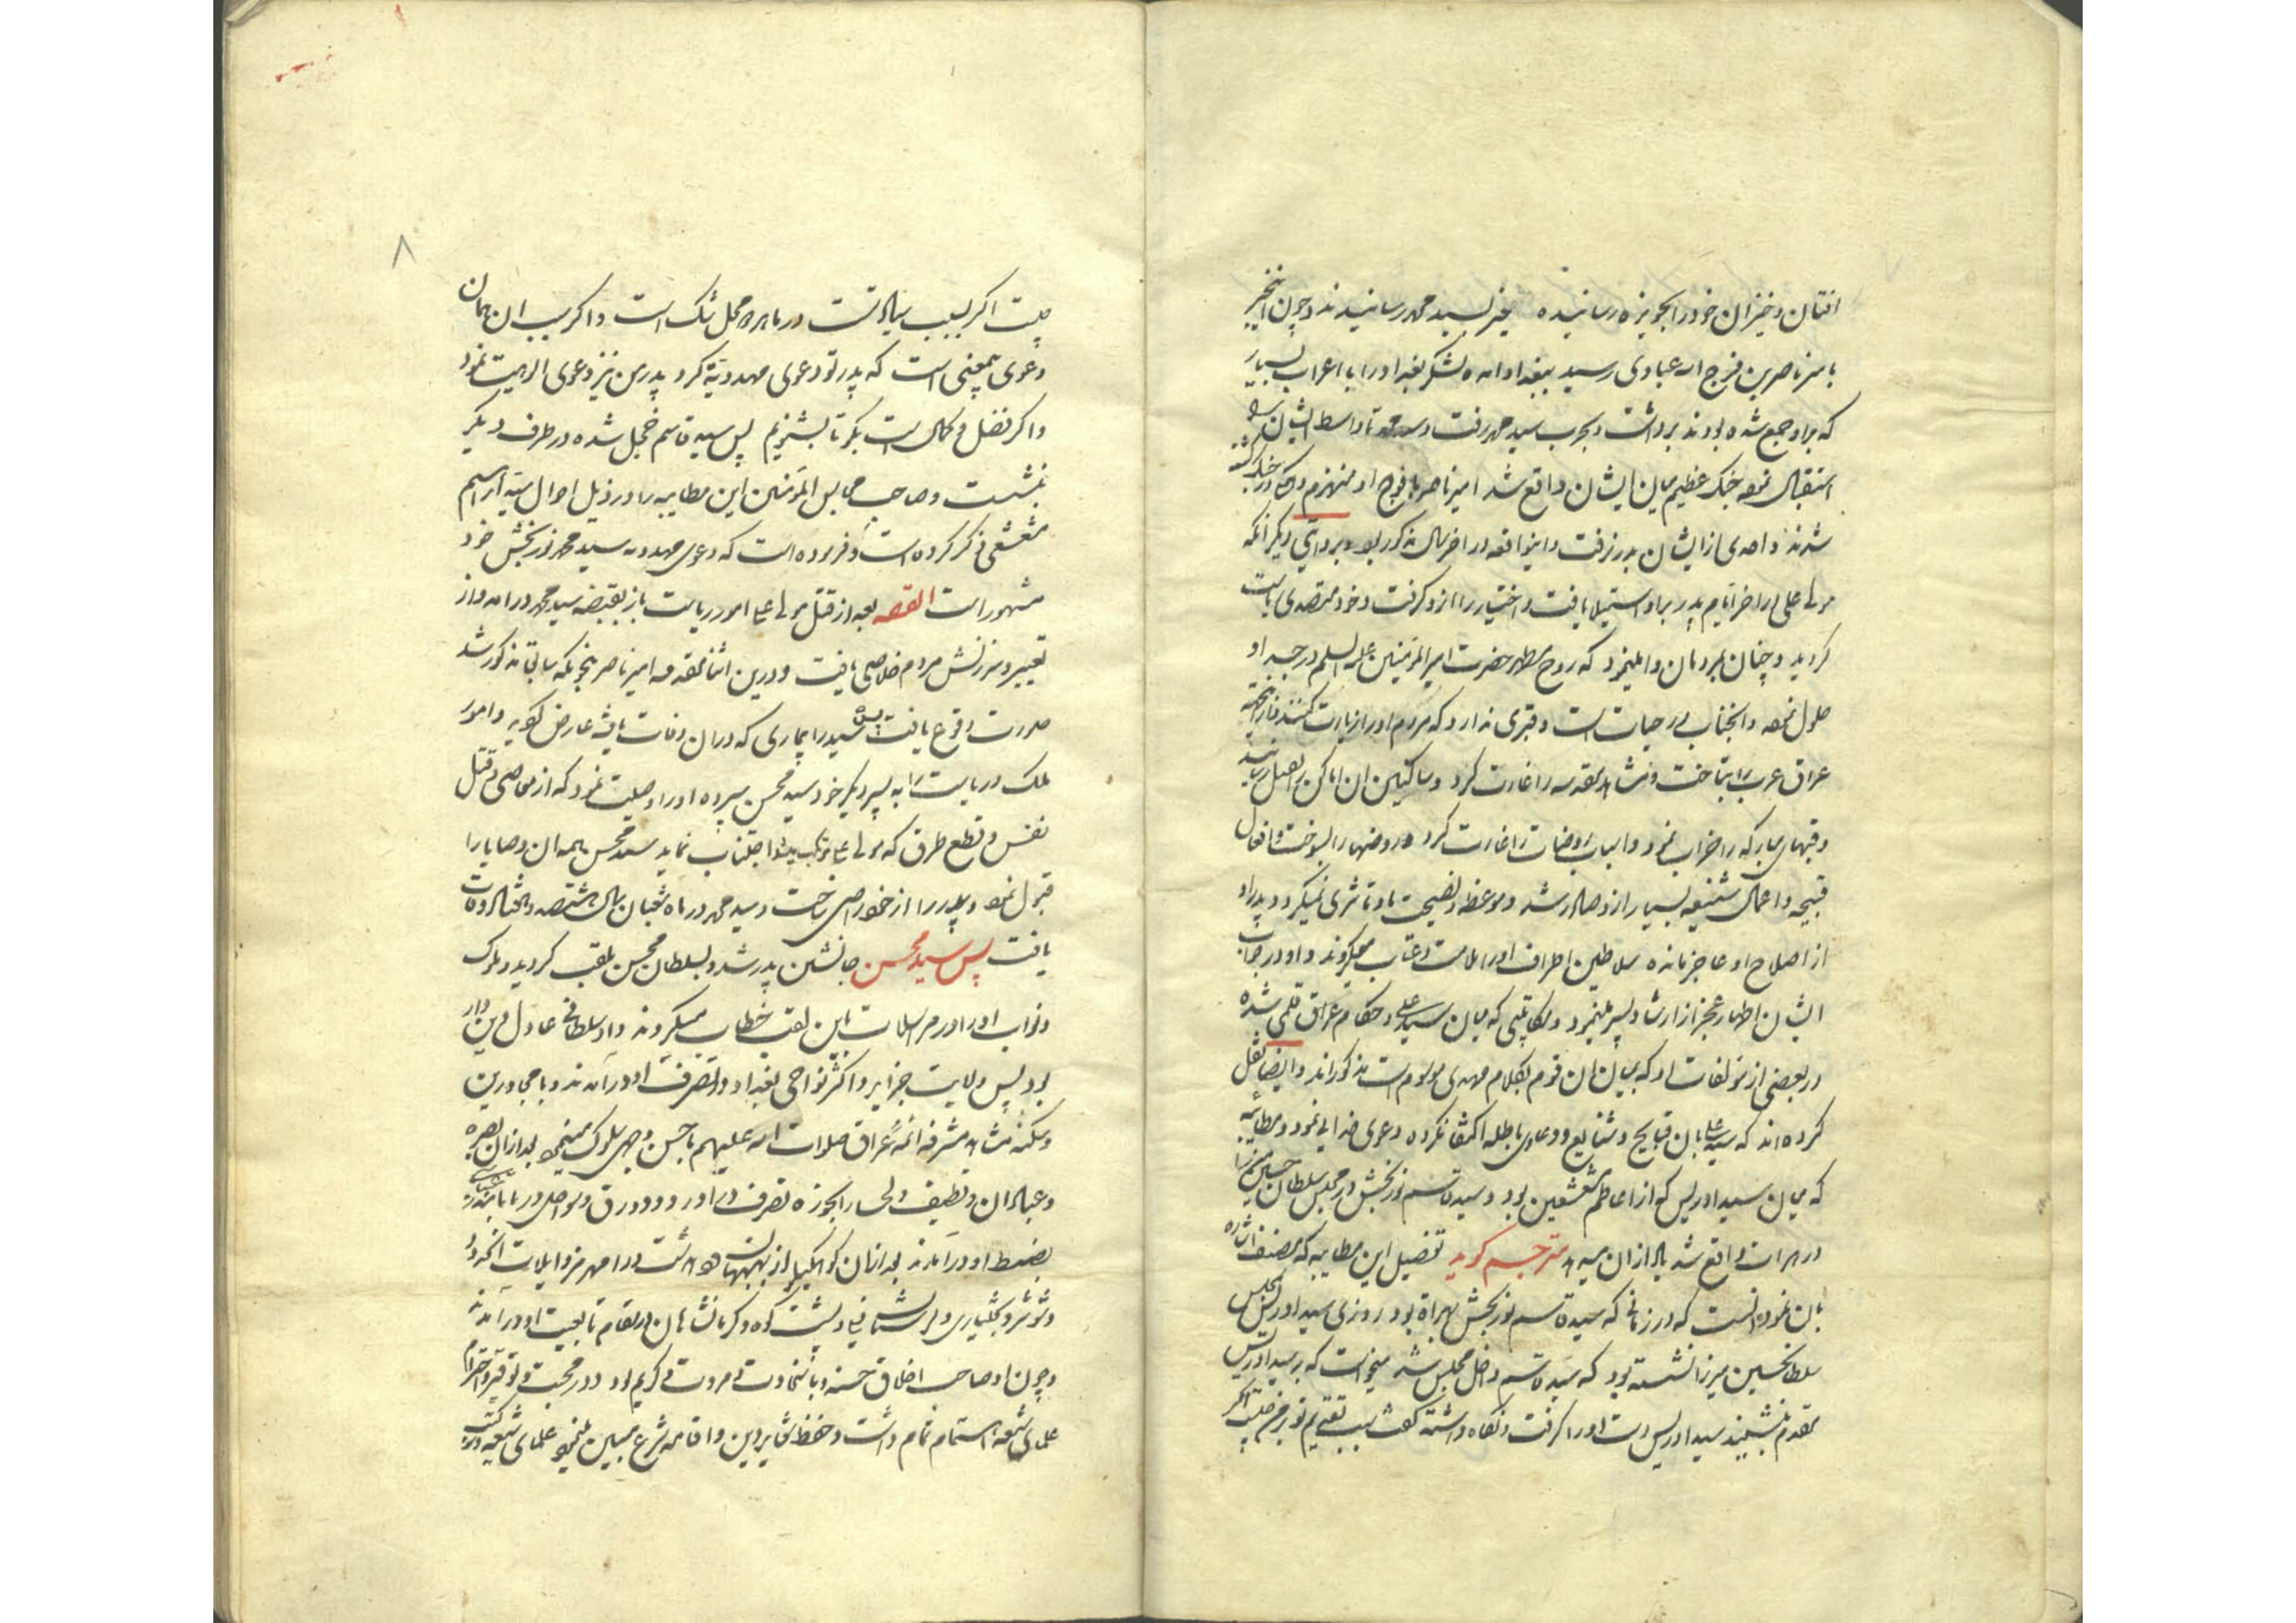 افتان و خیزان خود را بجویزه رسانیده خبر بسید محمد رسانیدند و چون اینخبر
بامیر ناصر بن فرج الله عبادی رسید ببغداد آمده لشکر بغداد را با اعراب بسیار
که برو جمع شده بودند برداشت و بحرب سید محمد رفت و سید محمد تا واسط ایشانرا
استقبال نموده جنک عظیم میان ایشان واقع شد امیر ناصر با فوج او منهزم و در جنک کشته
شدند و احدی از ایشان بدر نرفت و اینواقعه در آخر سال مذکور بود و بروایتی دیگر آنکه
مولی علی در آخر ایام پدر بر او استیلا یافت و اختیار را ازو گرفت و خود متصدی ریاست
کردید و چنان بمردمان وامینمود که روح مطهر حضرت امیر المؤمنین علیه السلم در جسد او
حلول نموده و انجناب در حیات است و قبری ندارد که مردم او را زیارت کنند
عراق عرب را بتاخت و مشاهد مقدسه را غارت کرد و ساکنین آن اماکن را بقتل رسانید
و قبهای مبارکه را خراب نمود و اسباب روضات را غارت کرد و روضها را بسوخت و افعال
قبیحه و اعمال شنیعه بسیار ازو صادر شد و موعظه و نصیحت باو تاثیری نمیکرد و پدر او
از اصلاح او عاجز مانده سلاطین اطراف او را ملامت و عتاب میکردند و او در جواب
ایشان اظهار عجز از ارشاد پسر مینمود و مکاتیبی که میان سید علی و حکام عراق قلمی شده
در بعضی از مؤلفات او که میان آن قوم بکلام مهدی موسوم است مذکوراند و ایضا نقل
کرده‌اند که سید علی بان قبایح و شنایع و دعاوی باطله اکتفا نکرده دعوی خدایی نمود و مطایبه
که میان سید ادریس که از اعاظم مشعشعین بود و سید قاسم نوربخش در مجلس سلطان حسین میرزا
در هرات واقع شد دال از آن میدهد مترجم کوید تفصیل این مطایبه که مصنف اشاره
بان نموده آنست که در زمانی که سید قاسم نوربخش بهراة بود روزی سید ادریس بمجلس
سلطانحسین میرزا نشسته بود که سید قاسم داخل مجلس شد میخواست که بر سید ادریس
مقدم بنشیند سید ادریس دست او را گرفت و نگاه داشته گفت سبب تقدیم تو بر من چیست اکر
چیست اکر بسبب سیادتست در ما برده محل شک است و اکر بسبب ان همان
دعوی بمعنی است که پدر تو دعوی مهدویة کرد پدر من نیز دعوی الوهیت نمود
و اکر فضل و کمال است بگو تا بشنویم پس سید قاسم خجل شده در طرف دیگر
بنشست و صاحب مجالس المؤمنین این مطایبه را در ذیل احوال سید ابراهیم
مشعشعی ذکر کرده است و فرموده است که دعوی مهدویه سید محمد نوربخش خود
مشهور است القصه بعد از قتل مولی علی امور ریاست باز بقبضه سید محمد درآمد و از
تعییر و سرزنش مردم خلاصی یافت و درین اثنا مقدمه امیر ناصر بنحویکه سابقا مذکور شد
صورت وقوع یافت پس سید را بیماری که در ان وفات یافته عارض کردید و امور
ملک و ریاست را به پسر دیگر خود سید محسن سپرده او را وصیت نمود که از معاصی و قتل
نفس و قطع طرق که مولی علی مرتکب میشد اجتناب نماید سید محسن همه ان وصایا را
قبول نموده و پدر را از خود راضی ساخت و سید محمد در ماه شعبان سال هشتصد و هفتاد وفات
یافت پس سید محسن جانشین پدر شد و بسلطان محسن ملقب کردید و ملوک
و نواب او را در مراسلات باین لقب خطاب میکردند و او سلطانی عادل و دین‌دار
بود پس ولایت جزایر و اکثر نواحی بغداد در تصرف او درآمدند و با مجاورین
و سکنه مشاهد مشرفه ائمه عراق صلوات الله علیهم باحسن وجهی سلوک مینمود بعد از ان بصره
و عبادان و قطیف و لحسا را بحوزه تصرف درآورد و دورق و سواحل دریا تا بندر عباسی
بضبط او درآمدند بعد از ان کوه‌کیلویه از بهبهان دشت و رامهرمز و ایلات انحدود
و شوشتر و بختیاری و لرستان فیلی و پشت کوه و کرمانشاهان در مقام تابعیت او درآمدند
و چون او صاحب اخلاق حسنه و باسخاوت و مروت و کریم بود و در محبت و توقیر و احترام
علمای شیعه اهتمام تمام داشت و حفظ شعایر دین و اقامه شرع مبین مینمود علمای شیعه کتب